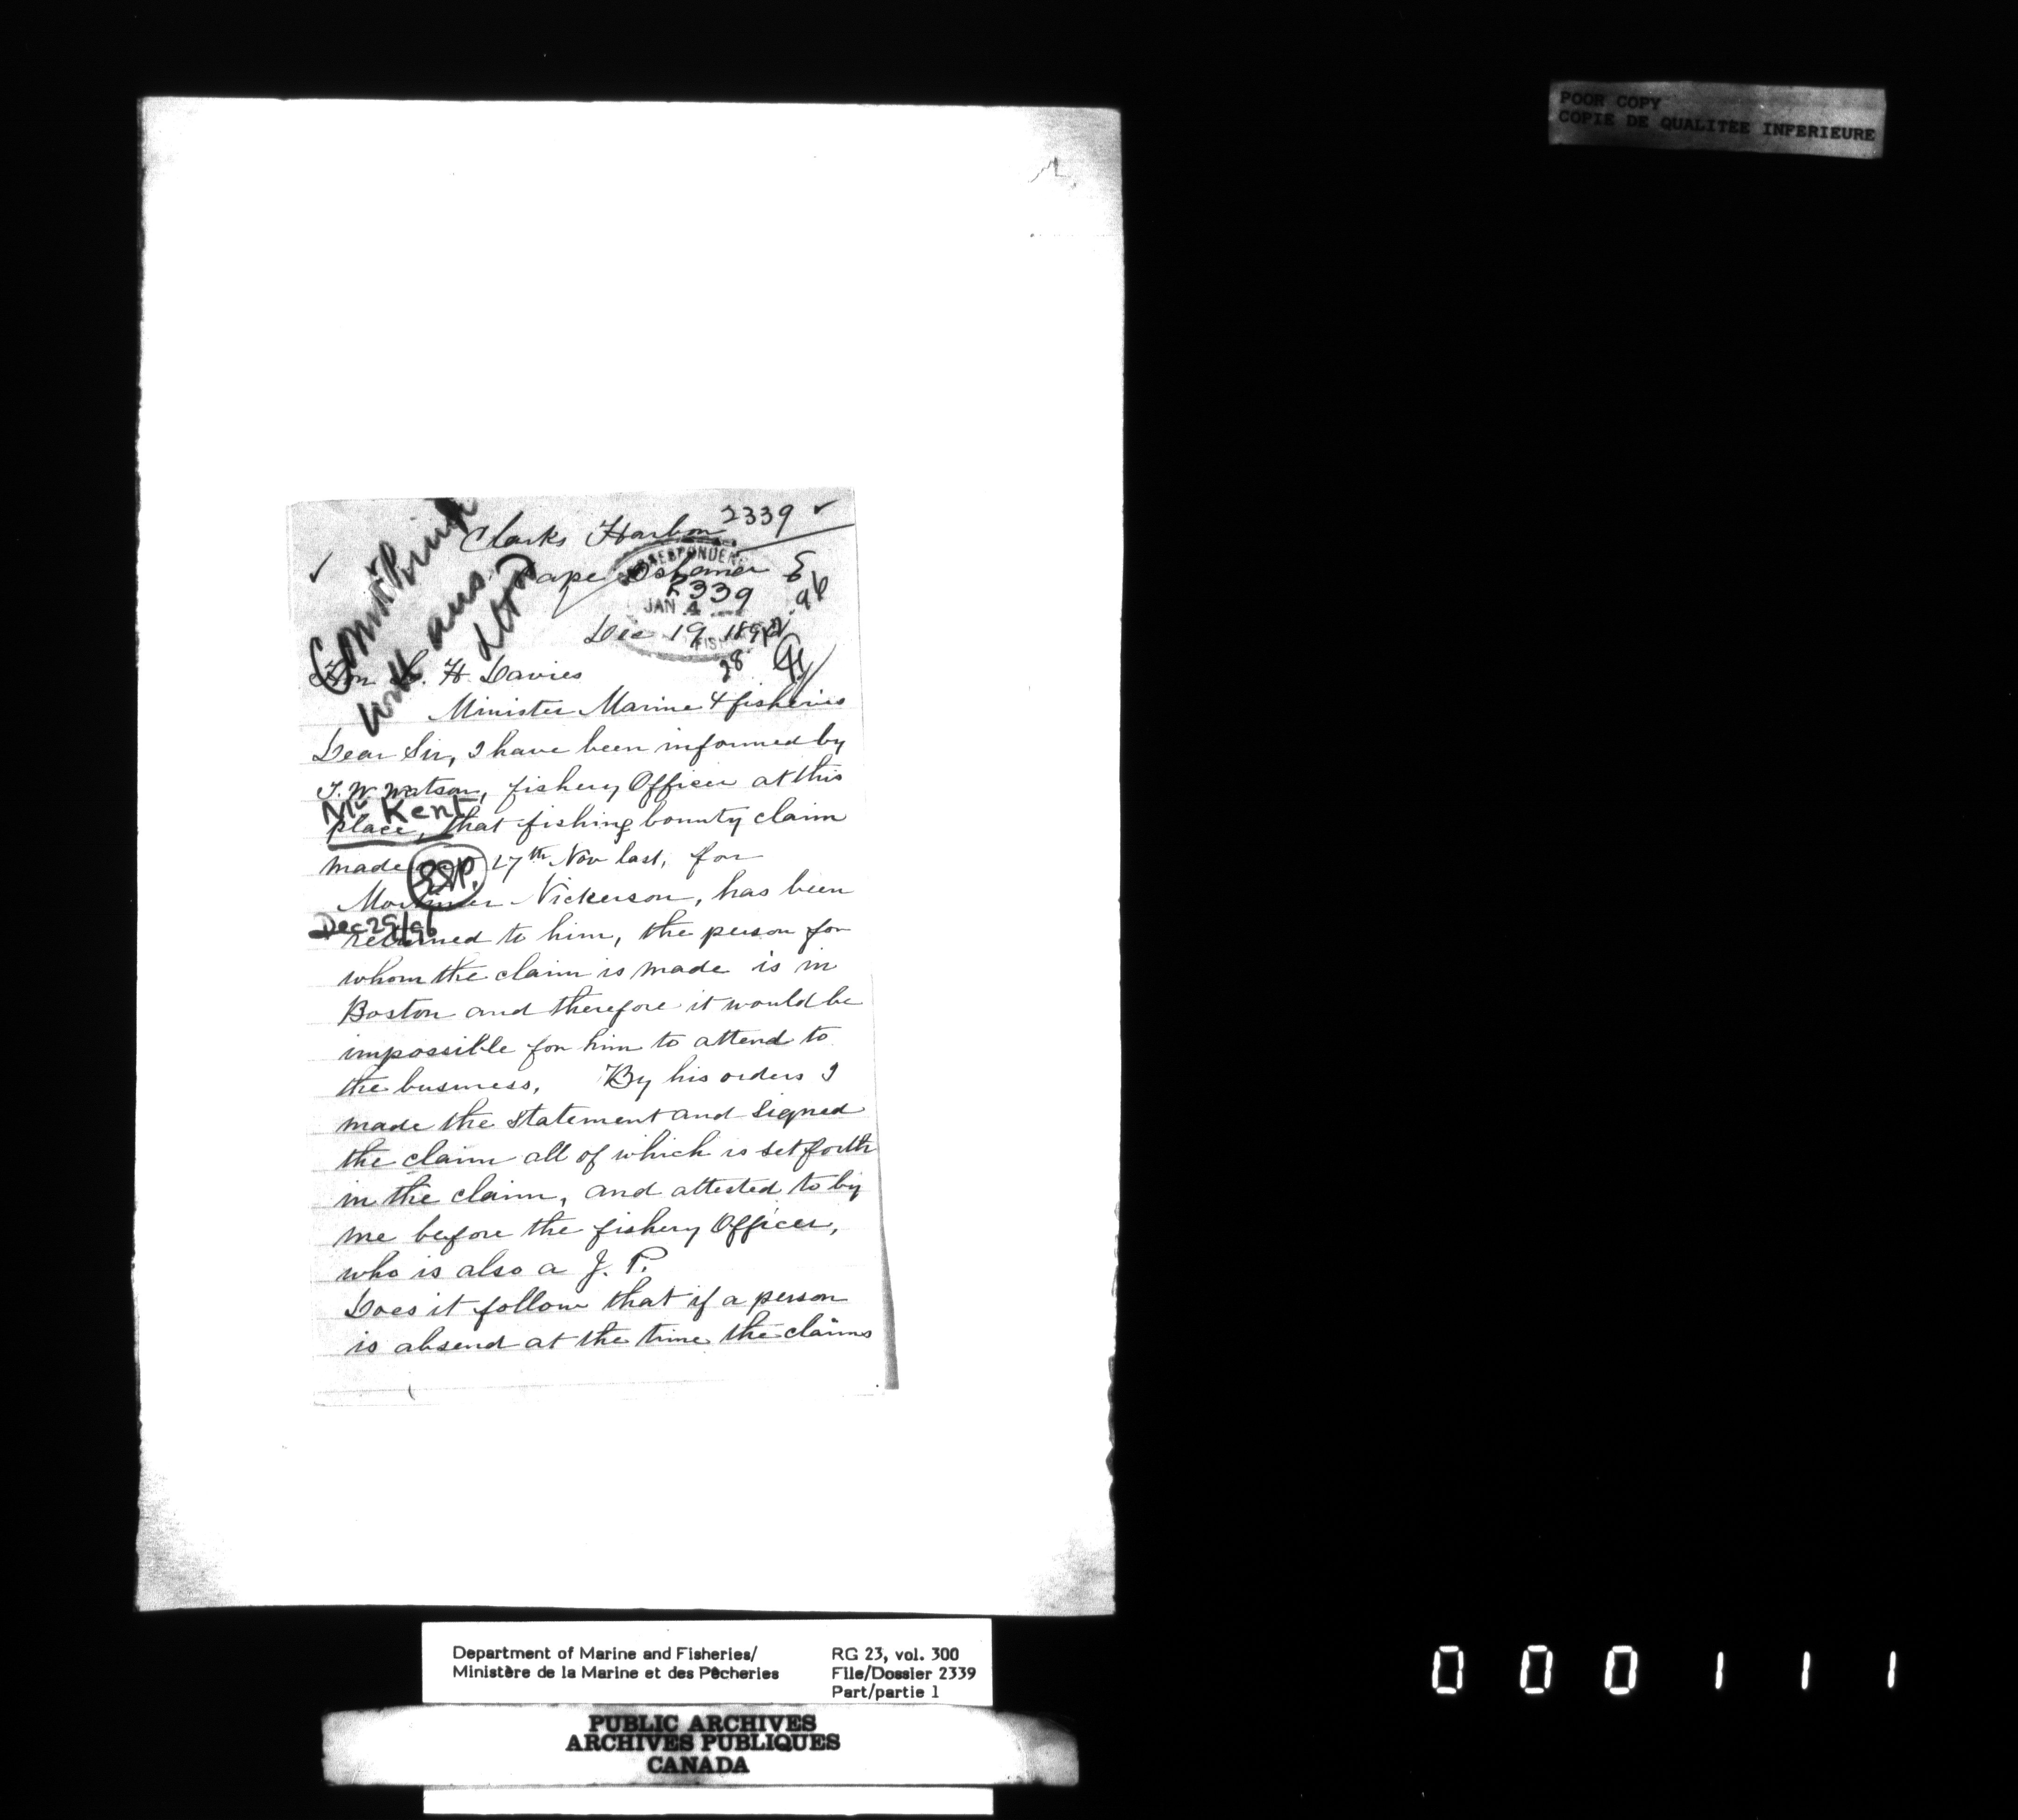 POOR COPY
COPIE DE QUALITÉE INFERIEURE
2339 ✓
Clarks Harbor
Cape
CORRESPONDEN
2339
JAN 4
Dec 19 189
28
96
Hon L. H. Davies
Minister Marine & fisheries
Dear Sir, I have been informed by
T. W. Watson, fishery Officer at this
Mr Kent
place, that fishing bounty claim
made 17th Nov last, for
Mortimer Nickerson, has been
Dec 29/96
returned to him, the person for
whom the claim is made is in
Boston and therefore it would be
impossible for him to attend to
the business, By his orders I
made the statement and signed
the claim all of which is set forth
in the claim, and attested to by
me before the fishery Officer,
who is also a J. P.
Does it follow that if a person
is absend at the time the claims
Department of Marine and Fisheries/
Ministère de la Marine et des Pêcheries
RG 23, vol. 300
File/Dossier 2339
Part/partie 1
PUBLIC ARCHIVES
ARCHIVES PUBLIQUES
CANADA
000111